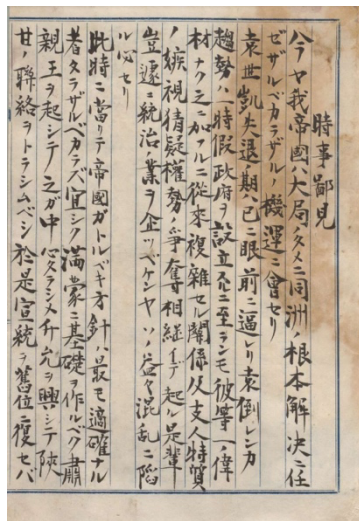 時事鄙見
今ヤ我帝國ハ大局ノタメニ同洲ノ根本解决ニ任
ゼザルベカラザルノ機運ニ會セリ
袁世凱失退ノ期ハ已ニ眼前ニ逼レリ袁倒レンカ
趨勢ハ一時假政府ヲ設立スルニ至ランモ彼等一ノ偉
材ナク之ニ加フルニ從來複雜セル關係及支人特質
ノ嫉視猜疑權勢ノ爭奪相継イデ起ル是輩
豈遽ニ統治ノ業ヲ企ツベケンヤソノ益々混乱ニ陥
ル必セリ
此時ニ當リテ帝國ガトルベキ方針ハ最モ適確ナル
者タラザルベカラズ宜シク満蒙ニ基礎ヲ作ルベク肅
親王ヲ起シテ之ガ中心タラシメ升允ヲ興シテ陝
甘ノ聯絡ヲトラシムベシ於是宣統ヲ舊位ニ復セバ